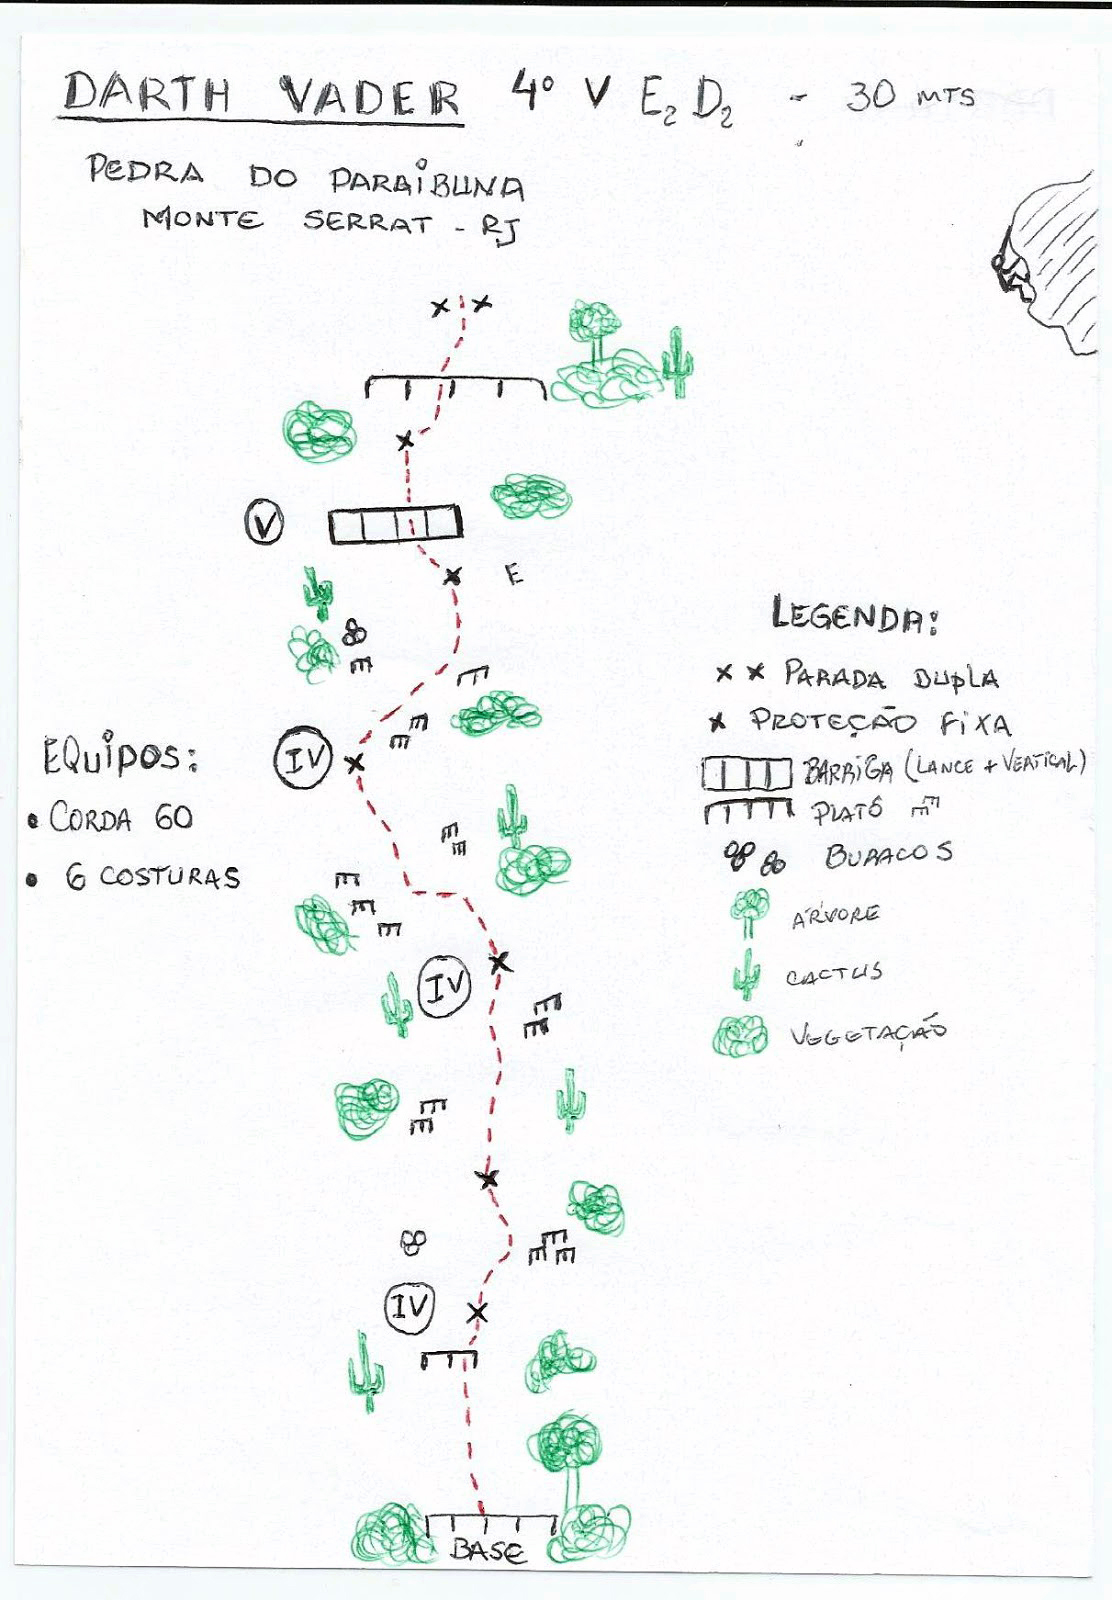 DARTH VADER 4º V E2 D2 - 30 MTS
PEDRA DO PARAIBUNA
MONTE SERRAT - RJ
V
E
LEGENDA:
X X PARADA DUPLA
X PROTEÇÃO FIXA
BARRIGA (LANCE + VERTICAL)
PLATÔ
BURACOS
ÁRVORE
CACTUS
VEGETAÇÃO
EQUIPOS:
• CORDA 60
• 6 COSTURAS
IV
IV
IV
BASE